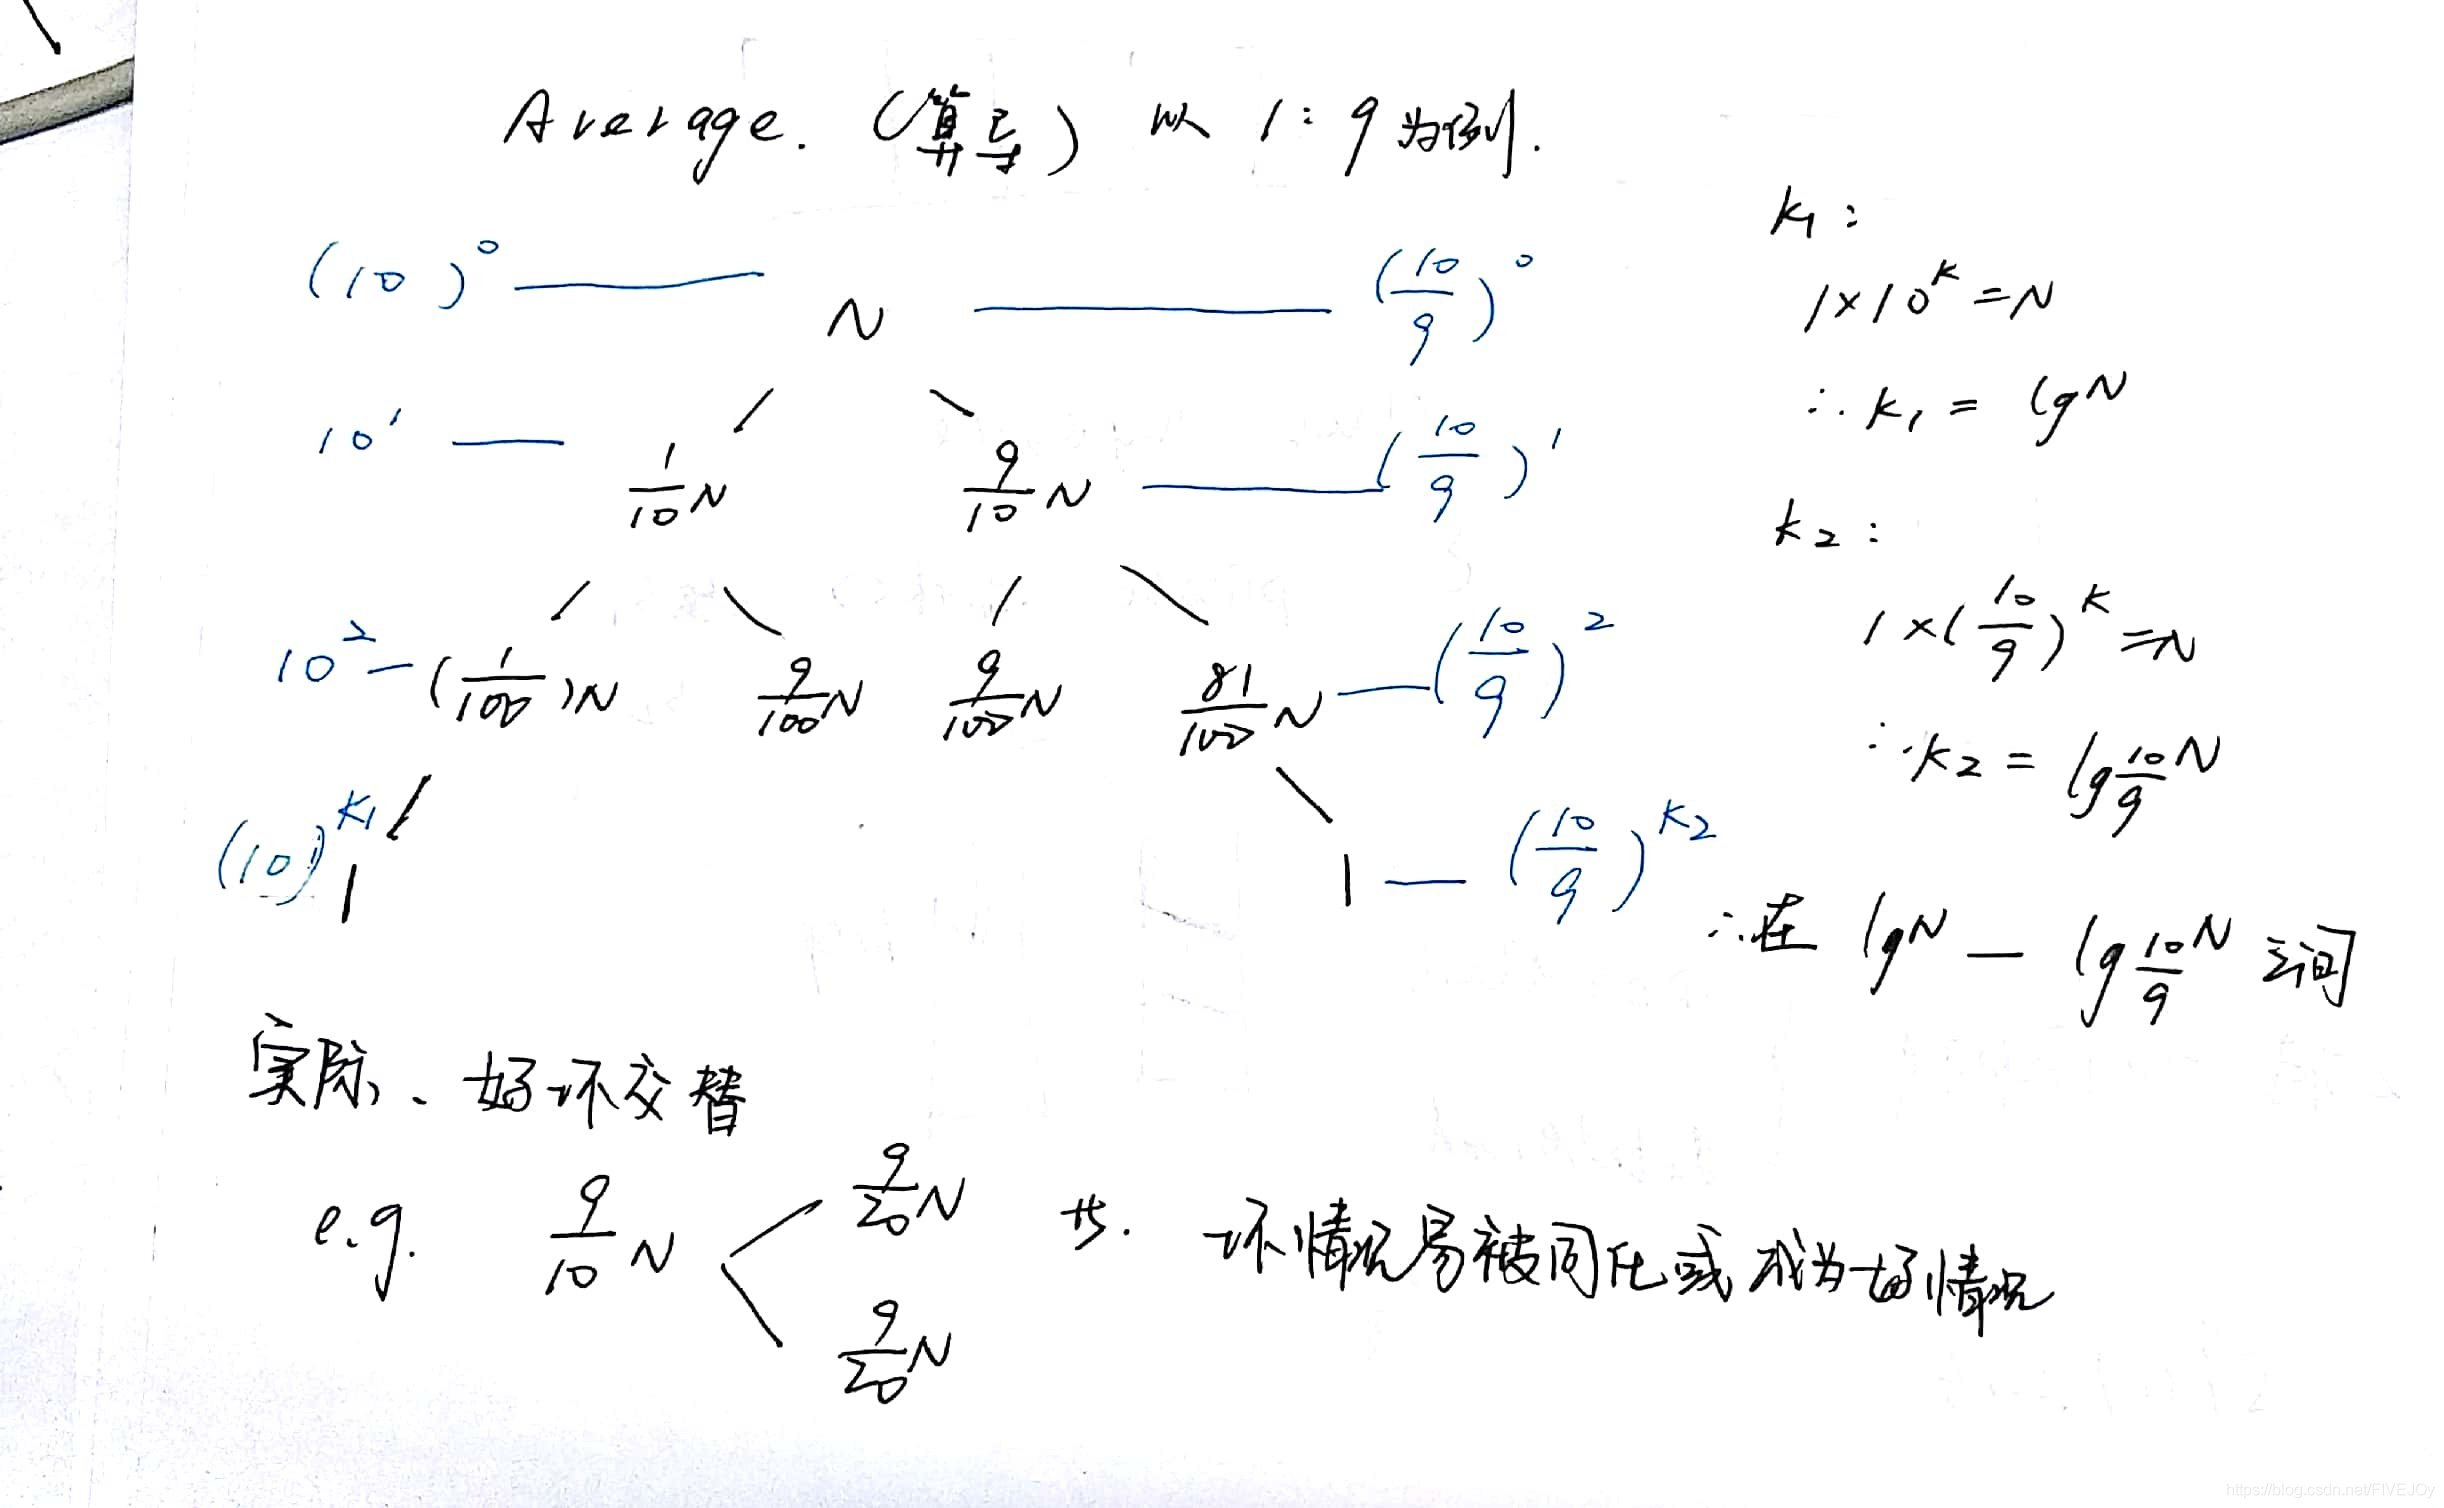 Average. (算导) 以 1:9 为例.
(10)^0 —— N —— (10/9)^0
10^1 — 1/10 N 9/10 N —— (10/9)^1
10^2 — (1/100)N 9/100 N 9/100 N 81/100 N — (10/9)^2
(10)^k1 1 1 — (10/9)^k2
k1:
1×10^k=N
∴k1 = lgN
k2:
1×(10/9)^k=N
∴k2 = lg 10/9 N
∴在 lgN — lg 10/9 N 之间
实际、好坏交替
e.g. 9/10 N < 9/20 N 9/20 N 坏情况易被同化或成为好情况
https://blog.csdn.net/FIVEJOy